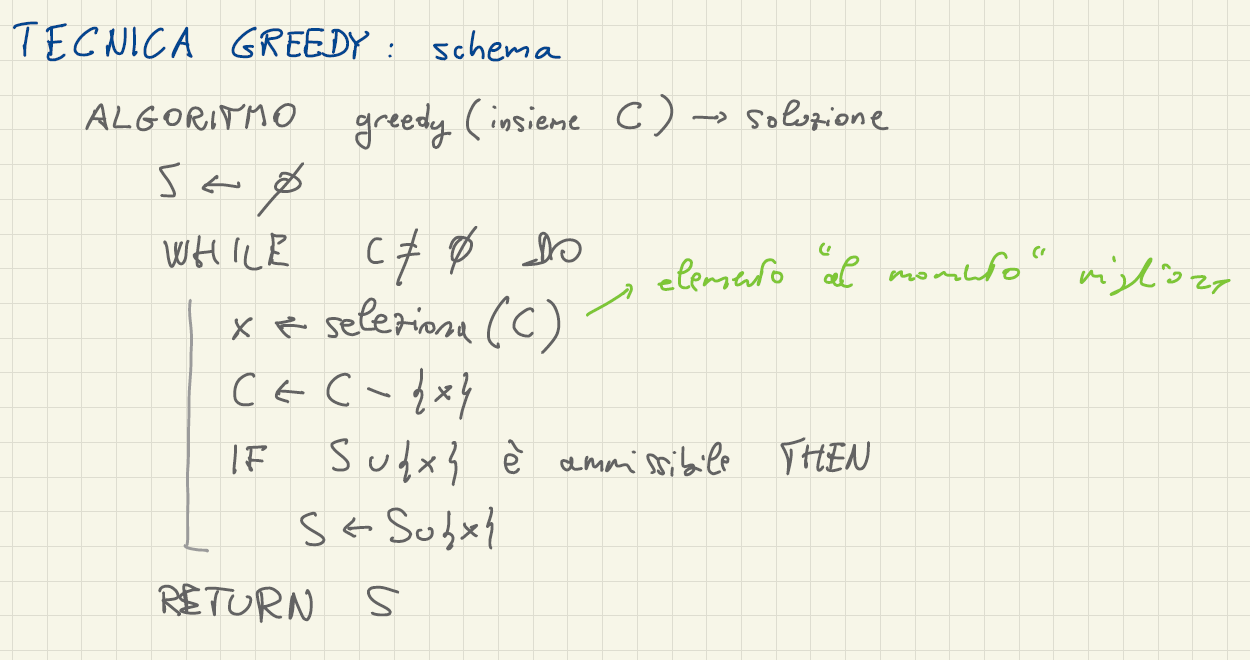 TECNICA GREEDY: schema
ALGORITMO greedy (insieme C) → soluzione
S ← ∅
WHILE C ≠ ∅ DO
x ← seleziona (C) → elemento "al momento" migliore
C ← C - {x}
IF S ∪ {x} è ammissibile THEN
S ← S ∪ {x}
RETURN S